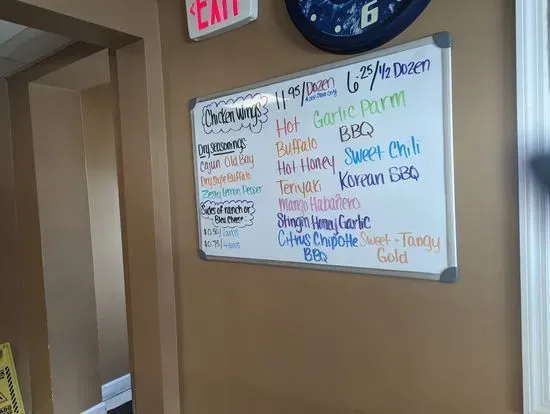 EXIT
6
Chicken Wings
11.95/Dozen
6.25/1/2 Dozen
Dry Seasonings
Cajun Old Bay
Dry Style Buffalo
Zesty Lemon Pepper
Sides of ranch or
Bleu Cheese
$0.50/
$0.75/
Hot
Garlic Parm
Buffalo
BBQ
Hot Honey
Sweet Chili
Teriyaki
Korean BBQ
Mango Habañero
Stingin Honey Garlic
Citrus Chipotle
BBQ
Sweet-Tangy
Gold